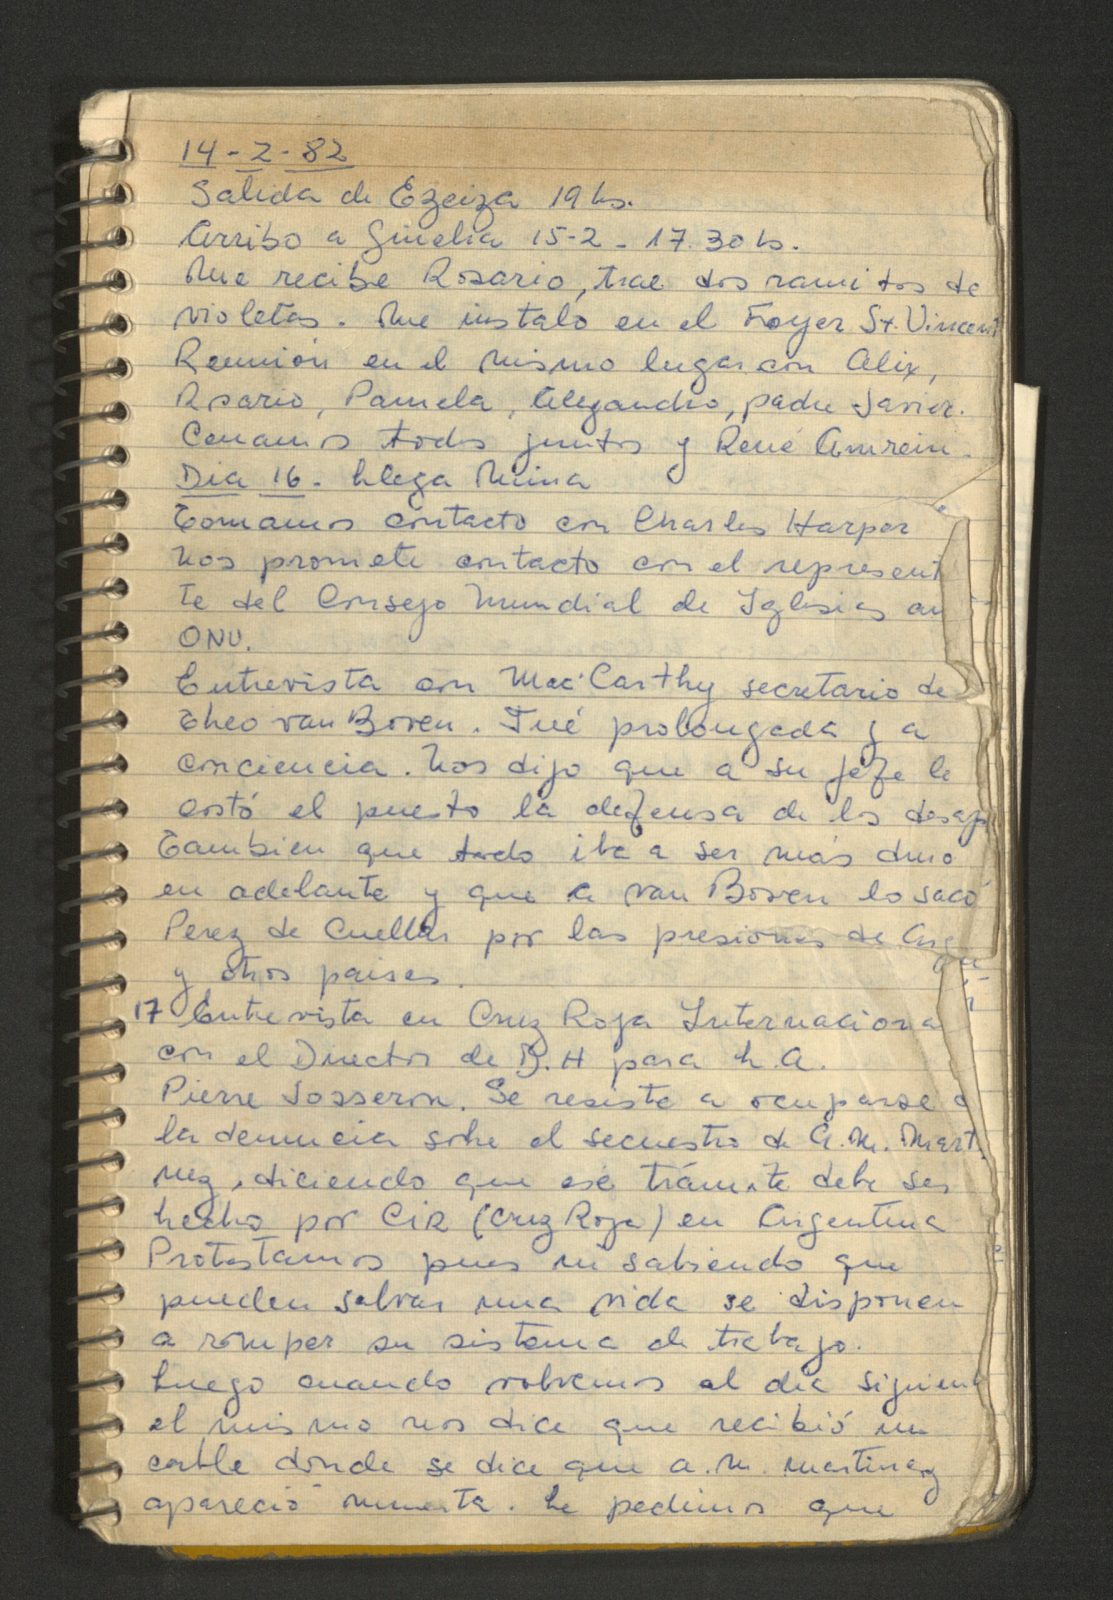 14-2-82
Salida de Ezeiza 19 hs.
Arribo a Ginebra 15-2- 17.30 hs.
Me recibe Rosario, trae dos ramitos de
violetas. Me instalo en el Foyer St. Vincent
Reunión en el mismo lugar con Alix,
Rosario, Pamela, Alejandro, padre Javier.
Cenamos todos juntos y René Amrein.
Dia 16. Llega Mina
Tomamos contacto con Charles Harper
Nos promete contacto con el represent
te del Consejo Mundial de Iglesias an
ONU.
Entrevista con Mac Carthy secretario de
Theo van Boven. Fué prolongada y a
conciencia. Nos dijo que a su jefe le
costó el puesto la defensa de los desap
Tambien que todo iba a ser más duro
en adelante y que a van Boven lo sacó
Perez de Cuellar por las presiones de Arg
y otros paises.
17 Entrevista en Cruz Roja Internaciona
con el Director de D.H para L.A.
Pierre Josseron. Se resiste a ocuparse d
la denuncia sobre el secuestro de A.M. Mart
nez, diciendo que ese trámite debe ser
hecho por CIR (Cruz Roja) en Argentina
Protestamos pues ni sabiendo que
pueden salvar una vida se disponen
a romper su sistema de trabajo.
Luego cuando volvemos al dia siguient
el mismo nos dice que recibió un
cable donde se dice que a.M. Martinez
apareció muerta. Le pedimos que